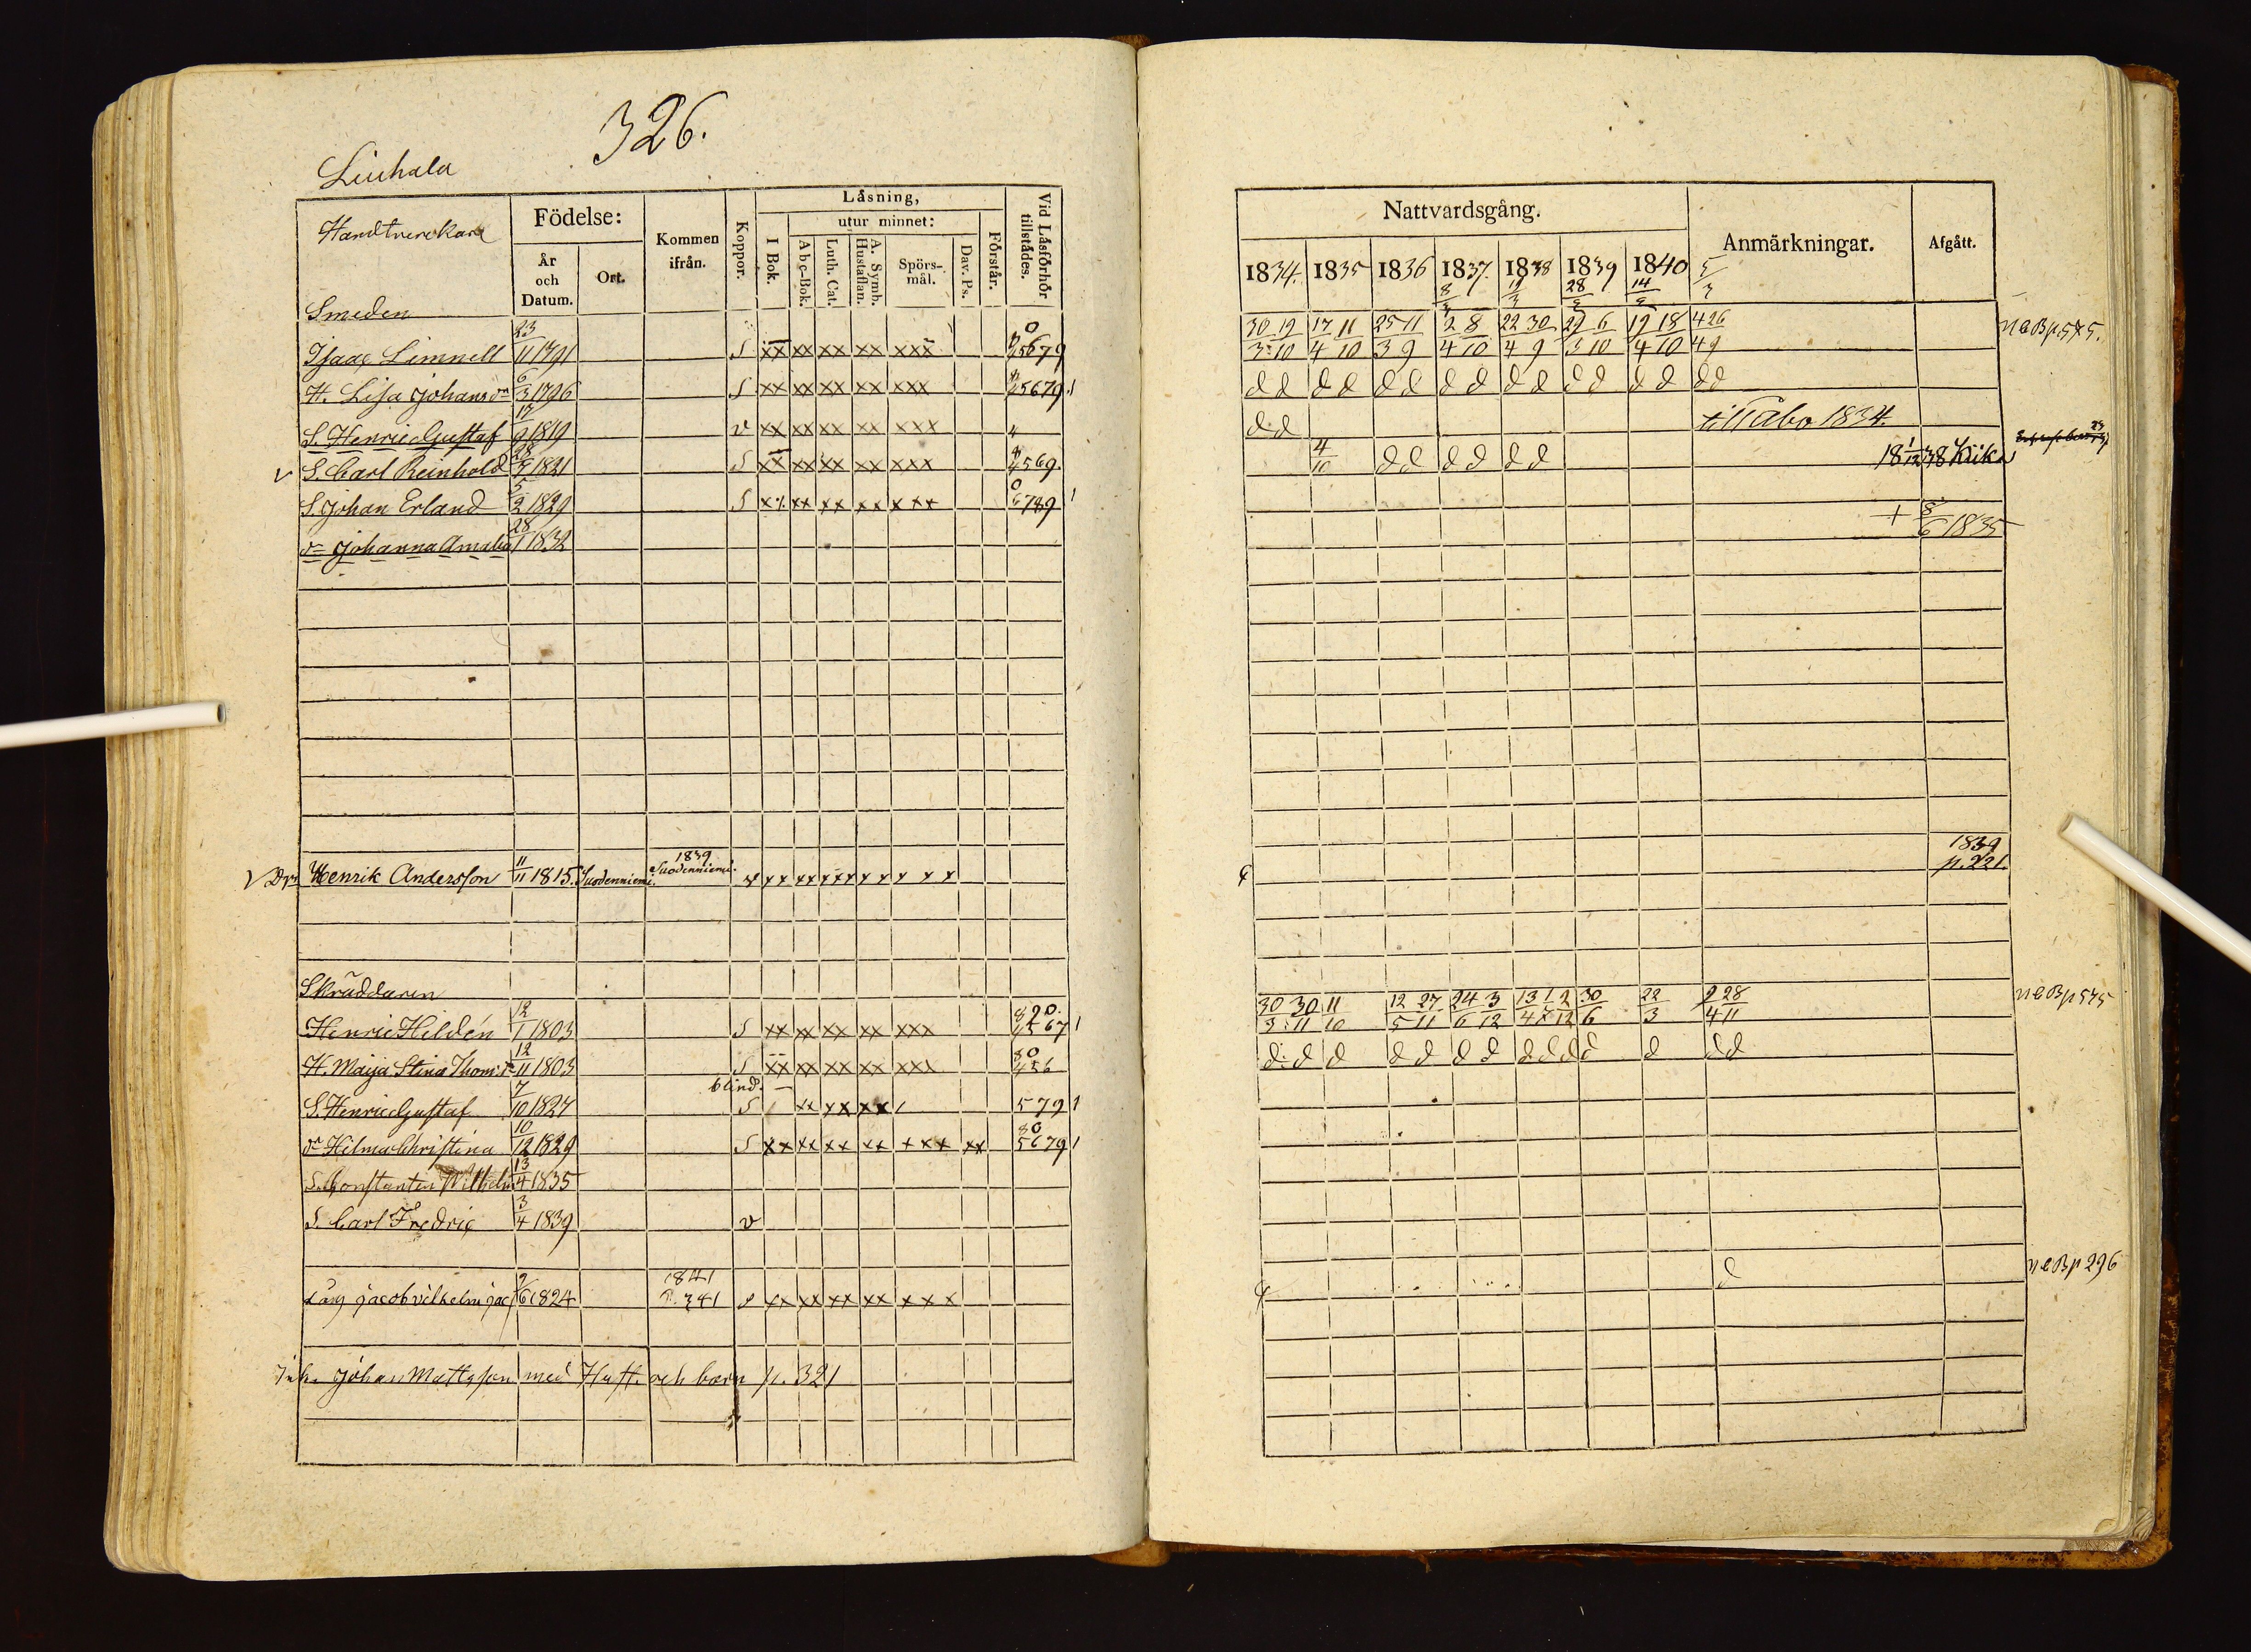 326.
Liuhala
Handtverckare
Födelse:
År och Datum.
Ort.
Kommen ifrån.
Koppor.
Läsning,
I Bok.
utur minnet:
A b c-Bok.
Luth. Cat.
A. Symb. Hustaflan.
Spörs-mål.
Dav. Ps.
Förstår.
Vid Läsförhör tillstådes.
Smeden
Isaac Limnell 23/11 1791 S xx xx xx xx xxx
H. Lisa Johansdr 6/3 1796 S xx xx xx xx xxx
S. Henric Gustaf 17/9 1819 v xx xx xx xx xxx
v S. Carl Reinhold 28/7 1821 S xx xx xx xx xxx 4569.
S. Johan Erland 5/2 1829 S xx xx xx xx xxx 6789
dr Johanna Amalia 28/1 1832
v Dr. Henrik Andersson 11/11 1815. Suodenniemi. 1839 Suodenniemi. v xx xx xx xx xxx
Skräddaren
Henric Hildén 12/1 1803 S xx xx xx xx xxx
H. Maija Stina Thom:dr 12/11 1803 S xx xx xx xx xxx
blind.
S. Henric Gustaf 7/10 1827 S xx xx xx 579
dr Hilma Christina 10/12 1829 S xx xx xx xx xxx xx 5679
S. Constantin Wilhelm 13/4 1835
S. Carl Fredric 3/4 1839 v
jacob vilhelm jac 9/6 1824 1841 p. 341 xx xx xx xx xxx
Inh. Johan Mattsson med Hust. och barn p. 321
Nattvardsgång.
Anmärkningar.
Afgått.
1834. 1835 1836 1837. 1838 1839 1840
8/3 28/3 14/3 5/3
30 19 17 11 25 11 2 8 22 30 29 6 19 18 4 26
3 10 4 10 3 9 4 10 4 9 3 10 4 10 4 9
neBp 575.
d d d d d d d d d d d d d d d d
d. d till Åbo 1834.
4/10 d d d d d d 18 1/12 38 Kiika
+ 8/6 1835
1839
p. 221.
30 30 11 12 27 24 3 13 1 2 30 22 2 28
3 11 10 5 11 6 12 4 7 12 6 3 4 11
neBp 575
d. d d d d d d d d d d d d d
d
neBp 296